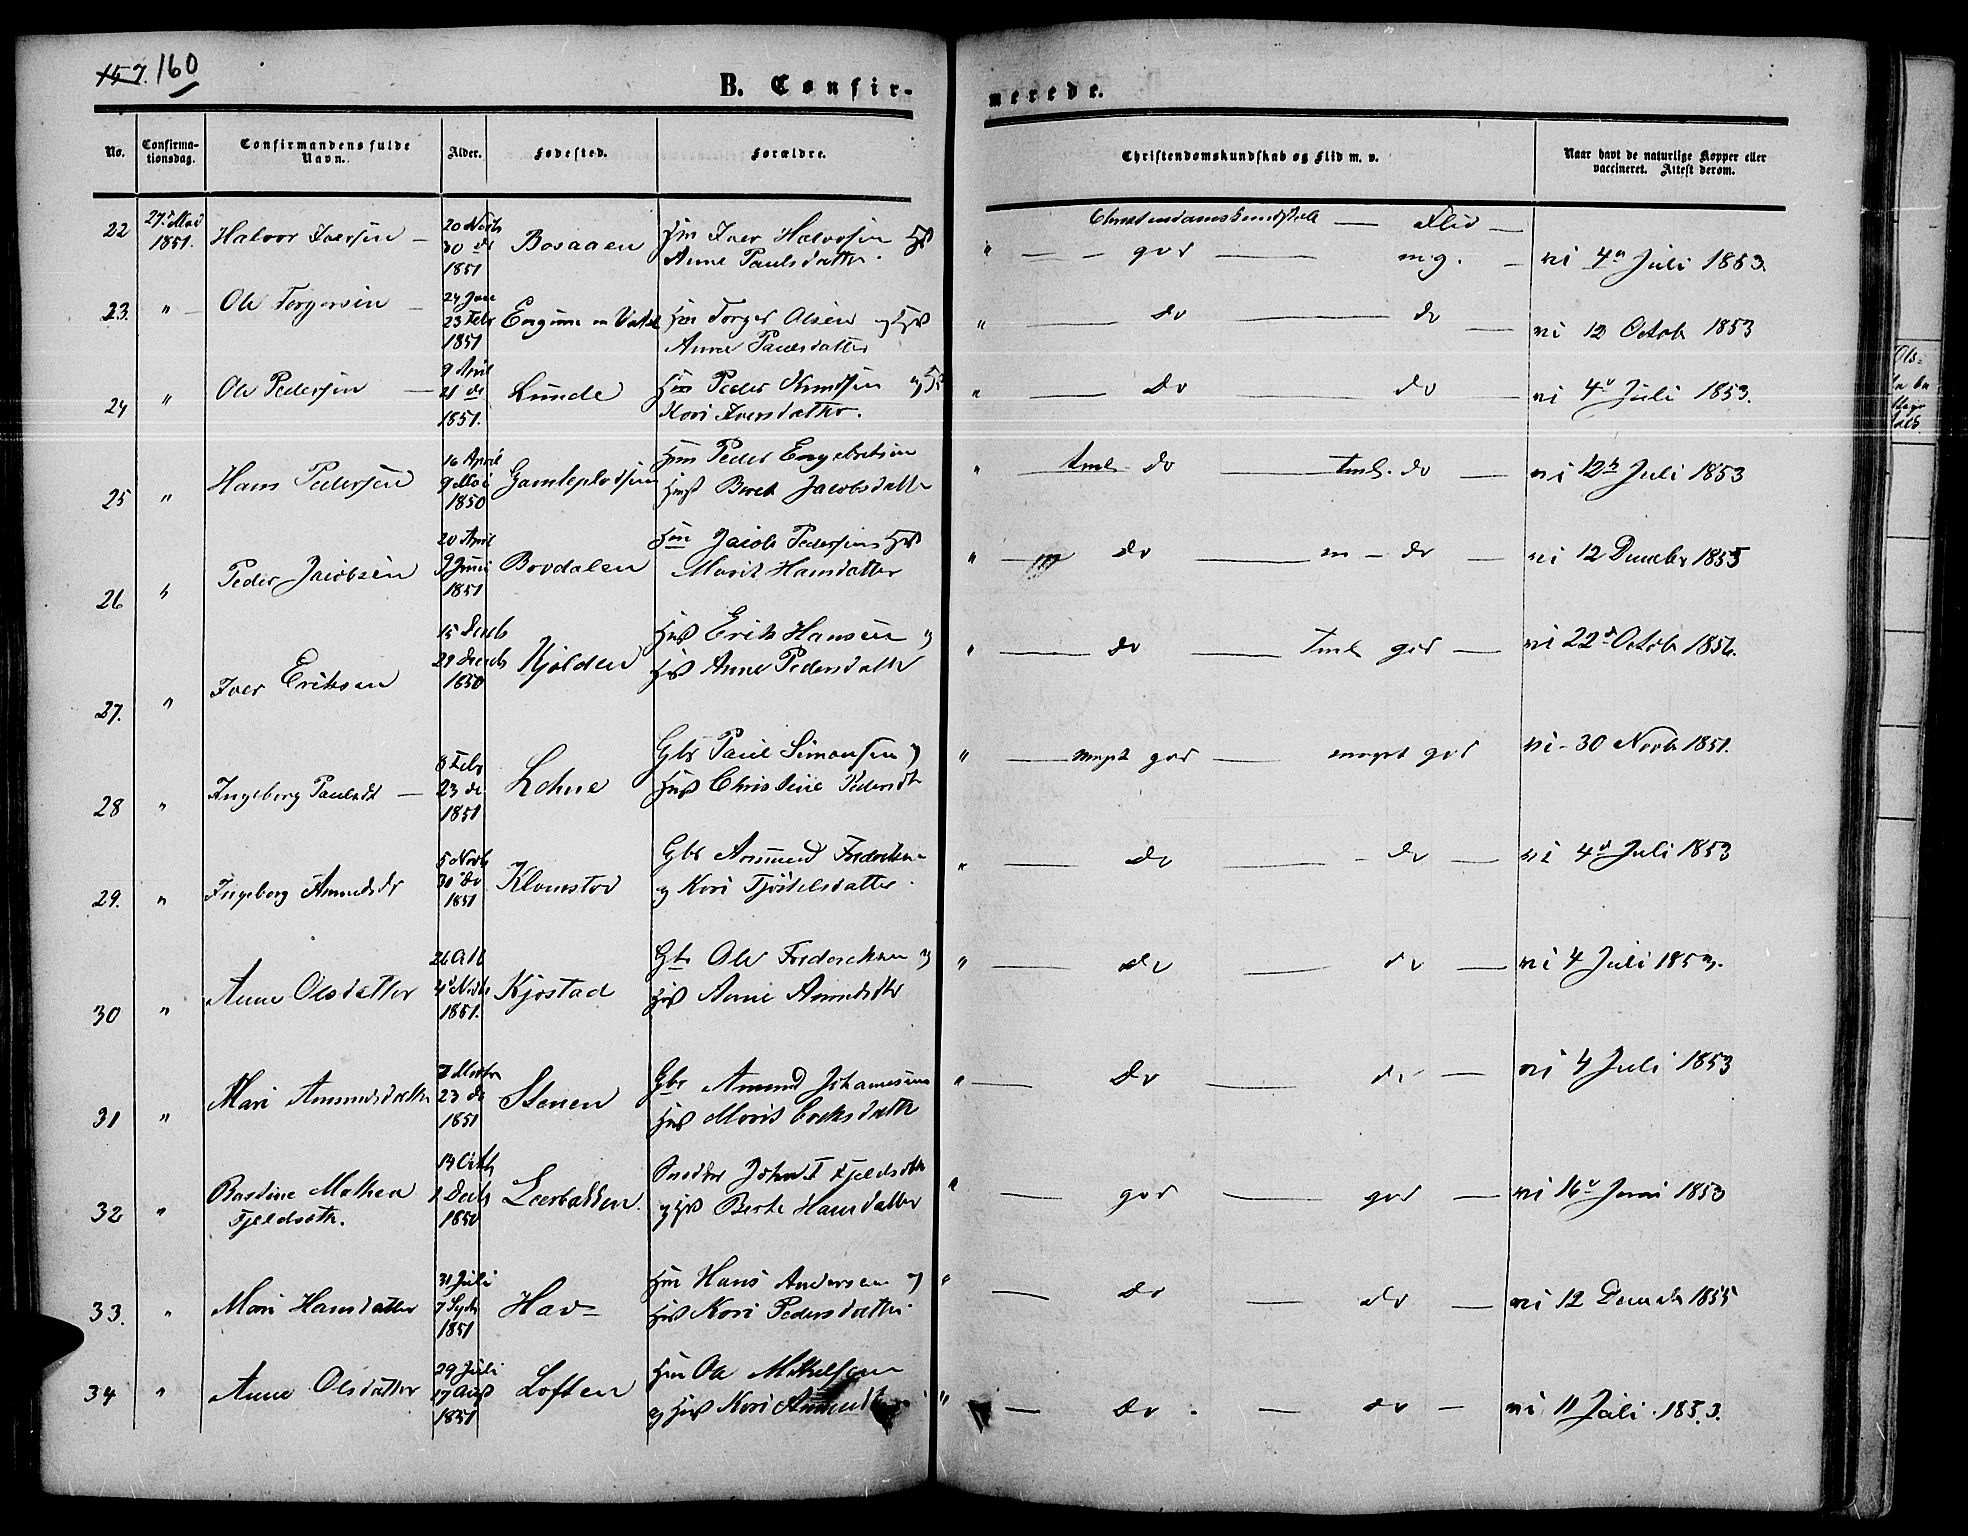 157. 160
B. Confir-
merede.
No. Confirma-tionsdag. Confirmandens fulde Navn. Alder. Fødested. Forældre. Christendomskundskab og Flid m. v. Naar havt de naturlige Kopper eller vaccineret. Attest derom.
Christendomskundskab — Flid —
22 27 Mai 1851. Halvor Iversen — 20 Novb 30 do 1851 Bosaaen Iver Halvorsen Anne Paulsdatter. " god — mg. — vi 4 Juli 1853.
23. " Ole Torgersen — 24 Jan 23 Feb 1851 Torger Olsen og Anne Paulsdatter " do — do — vi 12 Octob 1853
24 " Ole Pedersen — 9 April 21 do 1851. Lunde Peder Knudsen og Kari Iversdatter. " do — do — vi 4 Juli 1853.
25 " Hans Pedersen 16 April 9 Mai 1850 Gamleplodsen Peder Engebretsen Berit Jacobsdatter " tml. do — tml. do — vi 12 Juli 1853
26 " Peder Jacobsen 20 April 9 Juni 1851 Bovdalen Jacob Pedersen Marit Hansdatter " m do — m — do — vi 12 December 1855
27. " Iver Eriksen 15 Decb 29 Decb 1850 Kjølden Erik Hansen og Anne Pedersdatter " do — tml god — vi 22 Octob 1856.
28 " Ingeborg Paulsdt — 8 Feb 23 do 1851 Lohne Gbr Paul Simonsen og Christine Pedersdt " meget god — meget god vi 30 Novb 1851.
29. " Ingeborg Amundsdr 5 Novb 30 do 1851 Klomstad Gbr Amund Frederiksen og Kari Tjøstelsdatter. " do — do — vi 4 Juli 1853
30 " Anne Olsdatter 26 Octb 4 Novb 1851. Kjøstad Gbr Ole Frederiksen og Anne Amundsdtr " do — do — vi 4 Juli 1853.
31 " Mari Amundsdatter 23 do 1851 Stenen Gbr Amund Johannesen Marit Eriksdatter " do — do — vi 4 Juli 1853
32 " Bastine Mathea Fjeldsæth. 14 Octb 1 Decb 1850 Leerbakken. Johan Fjeldsæth og Berte Hansdatter " god — god — vi 16 Juni 1853
33. " Mari Hansdatter 31 Juli 7 Septr 1851 Hav Hans Andersen og Kari Pedersdatter. " do — do — vi 12 Decemb 1855
34 " Anne Olsdatter 29 Juli 17 Aug 1851 Loften Ole Mikkelsen og Kari " do — do — vi 11 Juli 1853.